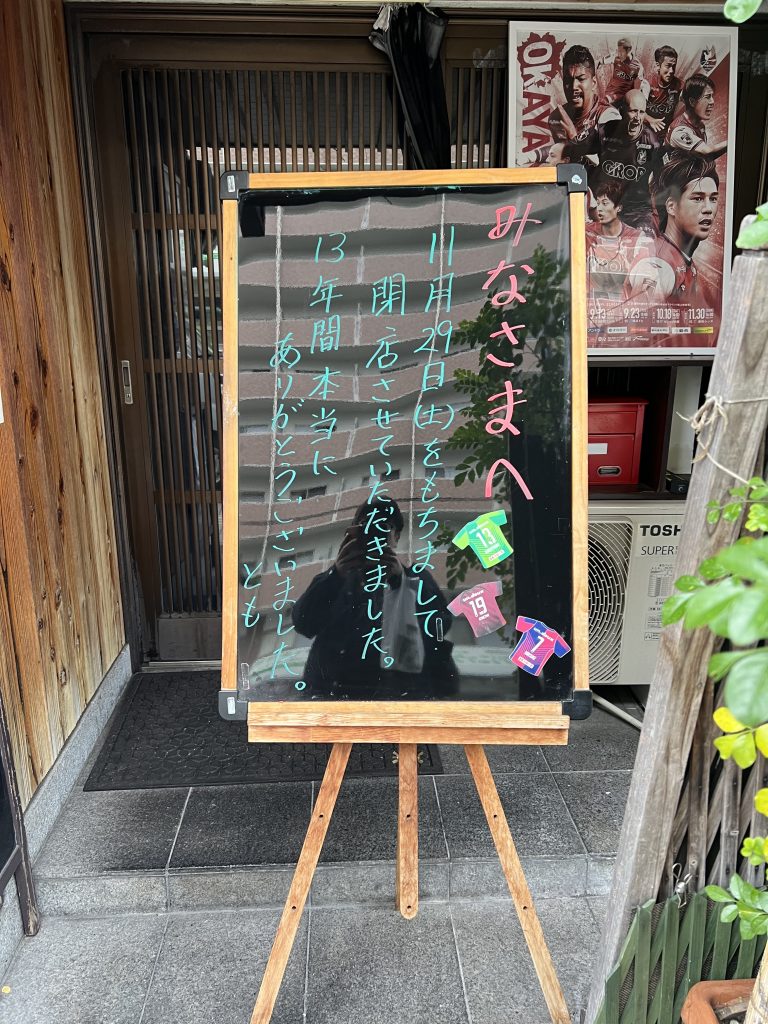 みなさまへ
11月29日(土)をもちまして
閉店させていただきました。
13年間本当に
ありがとうございました。
とも
13
19
7
OKAYA
GROP
9.13
9.23
10.18
11.30
TOSH
SUPER